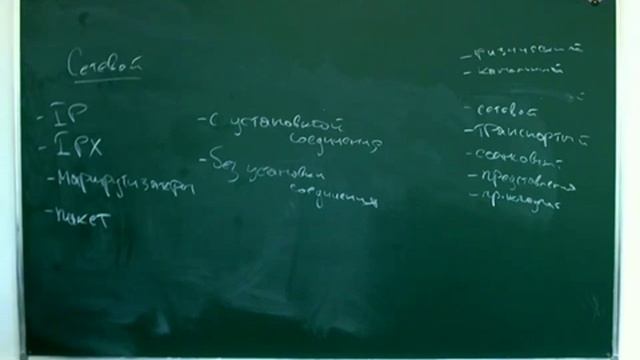 Сетевой
- IP
- IPX
- Маршрутизаторы
- пакет
- с установкой
соединения
- без установки
соединения
- физический
- канальный
й
- сетевой
- транспортный
- сеансовый
- представления
- прикладной